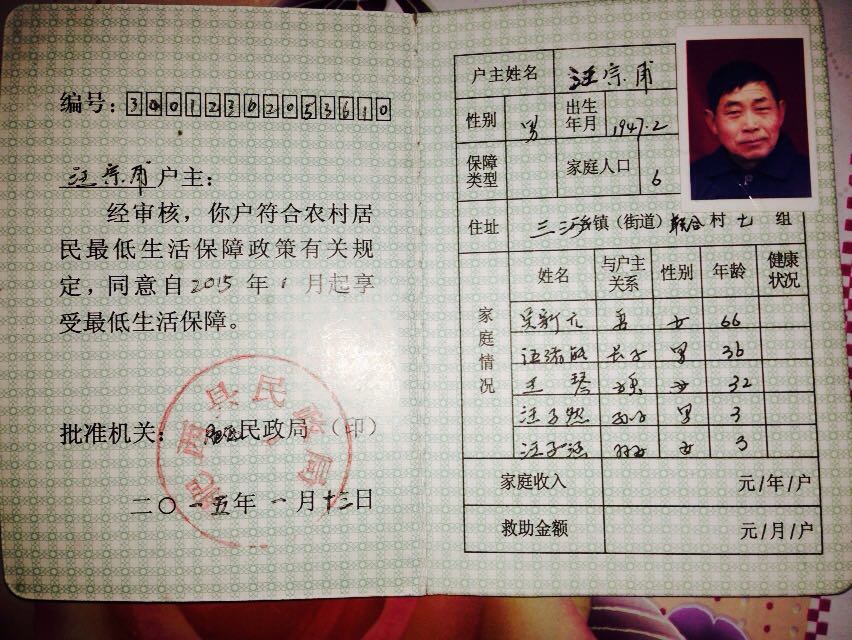 编号：34012362053610
汪宗甫户主：
经审核，你户符合农村居
民最低生活保障政策有关规
定，同意自2015年1月起享
受最低生活保障。
批准机关：民政局（印）
肥西县民政局
二〇一五年一月十三日
户主姓名 汪宗甫
性别 男 出生年月 1947.2
保障类型 家庭人口 6
住址 三河乡镇（街道）联合村七组
家庭情况
姓名 与户主关系 性别 年龄 健康状况
吴新元 妻 女 66
汪绪敏 长子 男 36
王琴 女 32
汪子 孙子 男 3
汪子涵 孙女 女 3
家庭收入 元/年/户
救助金额 元/月/户